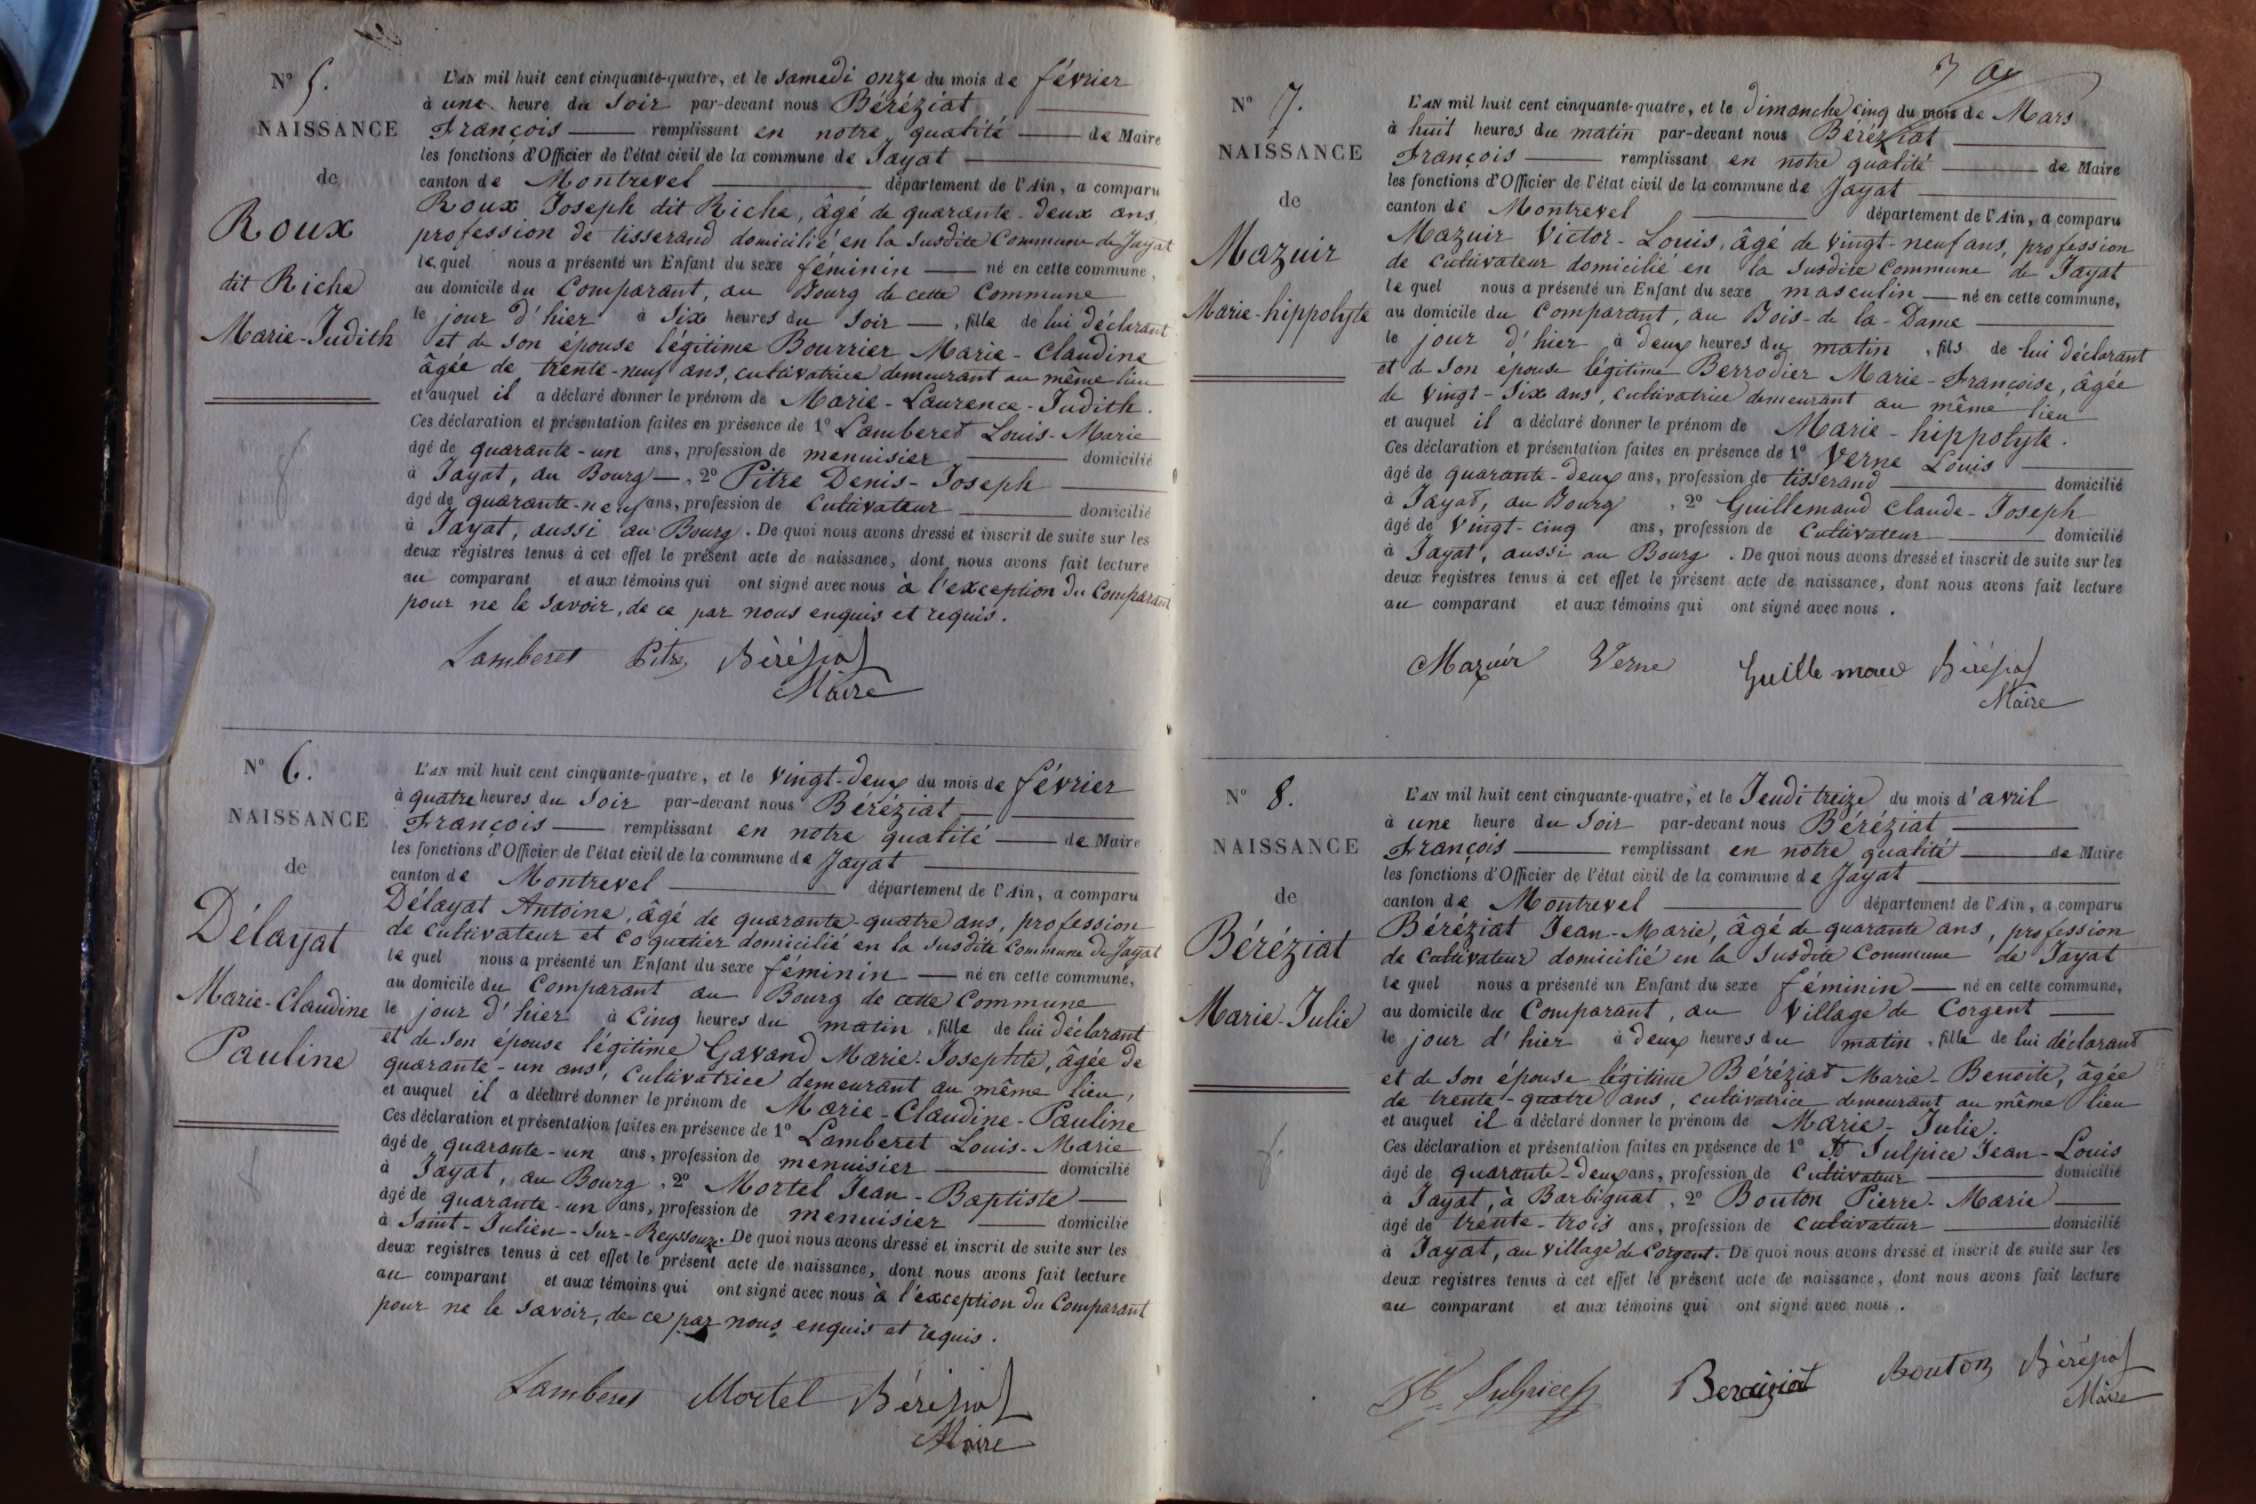 N° 5.
NAISSANCE
de
Roux
dit Riche
Marie-Judith
L'AN mil huit cent cinquante-quatre, et le samedi onze du mois de février
à une heure du soir par-devant nous Béréziat
François remplissant en notre qualité de Maire
les fonctions d'Officier de l'état civil de la commune de Jayat
canton de Montrevel département de l'Ain, a comparu
Roux Joseph dit Riche, âgé de quarante-deux ans,
profession de tisserand domicilié en la susdite Commune de Jayat
lequel nous a présenté un Enfant du sexe féminin né en cette commune,
au domicile du Comparant, au Bourg de cette Commune
le jour d'hier à six heures du soir, fille de lui déclarant
et de son épouse légitime Bourrier Marie-Claudine
âgée de trente-neuf ans, cultivatrice demeurant au même lieu
et auquel il a déclaré donner le prénom de Marie-Laurence-Judith.
Ces déclaration et présentation faites en présence de 1° Lamberet Louis-Marie
âgé de quarante-un ans, profession de menuisier domicilié
à Jayat, au Bourg, 2° Pitre Denis-Joseph
âgé de quarante-neuf ans, profession de Cultivateur domicilié
à Jayat, aussi au Bourg. De quoi nous avons dressé et inscrit de suite sur les
deux registres tenus à cet effet le présent acte de naissance, dont nous avons fait lecture
au comparant et aux témoins qui ont signé avec nous à l'exception du Comparant
pour ne le savoir, de ce par nous enquis et requis.
Lamberet Pitre Béréziat
Maire
N° 6.
NAISSANCE
de
Délayat
Marie-Claudine
Pauline
L'AN mil huit cent cinquante-quatre, et le vingt-deux du mois de février
à quatre heures du soir par-devant nous Béréziat
François remplissant en notre qualité de Maire
les fonctions d'Officier de l'état civil de la commune de Jayat
canton de Montrevel département de l'Ain, a comparu
Délayat Antoine, âgé de quarante-quatre ans, profession
de cultivateur et coquetier domicilié en la susdite Commune de Jayat
lequel nous a présenté un Enfant du sexe féminin né en cette commune,
au domicile du Comparant au Bourg de cette Commune
le jour d'hier à cinq heures du matin, fille de lui déclarant
et de son épouse légitime Gavand Marie-Josephte, âgée de
quarante-un ans, cultivatrice demeurant au même lieu,
et auquel il a déclaré donner le prénom de Marie-Claudine-Pauline
Ces déclaration et présentation faites en présence de 1° Lamberet Louis-Marie
âgé de quarante-un ans, profession de menuisier domicilié
à Jayat, au Bourg, 2° Mortel Jean-Baptiste
âgé de quarante-un ans, profession de menuisier domicilié
à Saint-Julien-sur-Reyssouze. De quoi nous avons dressé et inscrit de suite sur les
deux registres tenus à cet effet le présent acte de naissance, dont nous avons fait lecture
au comparant et aux témoins qui ont signé avec nous à l'exception du Comparant
pour ne le savoir, de ce par nous enquis et requis.
Lamberet Mortel Béréziat
Maire
N° 7.
NAISSANCE
de
Mazuir
Marie-hippolyte
L'AN mil huit cent cinquante-quatre, et le dimanche cinq du mois de Mars
à huit heures du matin par-devant nous Béréziat
François remplissant en notre qualité de Maire
les fonctions d'Officier de l'état civil de la commune de Jayat
canton de Montrevel département de l'Ain, a comparu
Mazuir Victor-Louis, âgé de vingt-neuf ans, profession
de cultivateur domicilié en la susdite Commune de Jayat
lequel nous a présenté un Enfant du sexe masculin né en cette commune,
au domicile du Comparant, au Bois-de la-Dame
le jour d'hier à deux heures du matin, fils de lui déclarant
et de son épouse légitime Berrodier Marie-Françoise, âgée
de vingt-six ans, cultivatrice demeurant au même lieu
et auquel il a déclaré donner le prénom de Marie-hippolyte.
Ces déclaration et présentation faites en présence de 1° Verne Louis
âgé de quarante-deux ans, profession de tisserand domicilié
à Jayat, au Bourg, 2° Guillemaud Claude-Joseph
âgé de vingt-cinq ans, profession de Cultivateur domicilié
à Jayat, aussi au Bourg. De quoi nous avons dressé et inscrit de suite sur les
deux registres tenus à cet effet le présent acte de naissance, dont nous avons fait lecture
au comparant et aux témoins qui ont signé avec nous.
Mazuir Verne Guillemaud Béréziat
Maire
N° 8.
NAISSANCE
de
Béréziat
Marie-Julie
L'AN mil huit cent cinquante-quatre, et le Jeudi treize du mois d'avril
à une heure du soir par-devant nous Béréziat
François remplissant en notre qualité de Maire
les fonctions d'Officier de l'état civil de la commune de Jayat
canton de Montrevel département de l'Ain, a comparu
Béréziat Jean-Marie, âgé de quarante ans, profession
de Cultivateur domicilié en la susdite Commune de Jayat
lequel nous a présenté un Enfant du sexe féminin né en cette commune,
au domicile du Comparant, au Village de Corgent
le jour d'hier à deux heures du matin, fille de lui déclarant
et de son épouse légitime Béréziat Marie-Benoite, âgée
de trente-quatre ans, cultivatrice demeurant au même lieu
et auquel il a déclaré donner le prénom de Marie-Julie.
Ces déclaration et présentation faites en présence de 1° St Sulpice Jean-Louis
âgé de quarante-deux ans, profession de Cultivateur domicilié
à Jayat, à Barbignat, 2° Bouton Pierre-Marie
âgé de trente-trois ans, profession de cultivateur domicilié
à Jayat, au village de Corgent. De quoi nous avons dressé et inscrit de suite sur les
deux registres tenus à cet effet le présent acte de naissance, dont nous avons fait lecture
au comparant et aux témoins qui ont signé avec nous.
St Sulpice Bereziat Bouton Béréziat
Maire